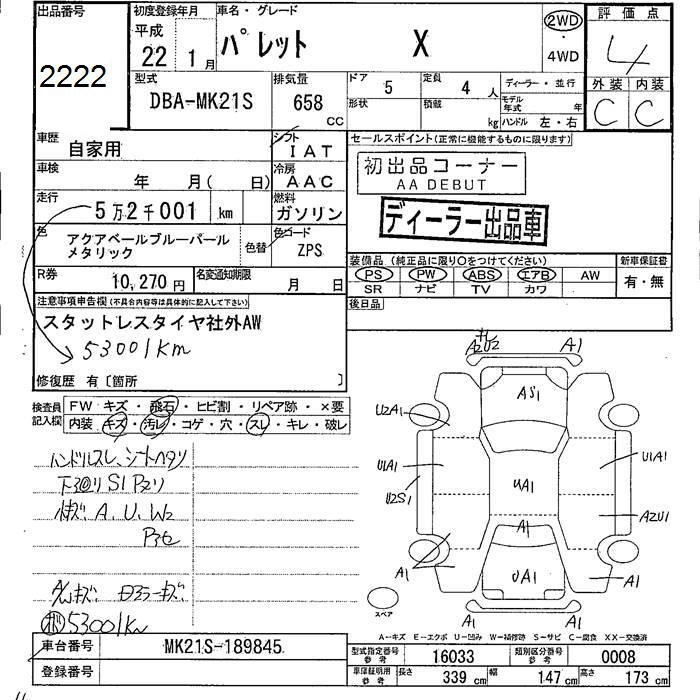 出品番号
2222
初度登録年月
平成
22 1月
車名・グレード
パレット X
2WD
・
4WD
評価点
4
外装 内装
C C
型式
DBA-MK21S
排気量
658
CC
ドア
5
形状
定員
4人
積載
kg
ディーラー・並行
モデル年式 年
ハンドル 左・右
車歴
自家用
シフト
IAT
セールスポイント(正常に機能するものに限ります)
初出品コーナー
AA DEBUT
ディーラー出品車
車検
年 月( 日)
冷房
AAC
走行
5万2千001 km
燃料
ガソリン
色
アクアベールブルーパール
メタリック
色替
色コード
ZPS
装備品(純正品に限り○をつけてください)
PS PW ABS エアB AW
SR ナビ TV カワ
新車保証書
有・無
R券
10,270円
名変通知期限
月 日
後日品
注意事項申告欄(不具合内容等は具体的に記入して下さい)
スタットレスタイヤ社外AW
53001Km
修復歴 有〔箇所 〕
検査員
記入欄
FW キズ・飛石・ヒビ割・リペア跡・×要
内装 キズ・汚レ・コゲ・穴・スレ・キレ・破レ
ハンドルスレ、シートヘタリ
下廻り S1 Pヌリ
A、U、W2
53001Km
A2U2 A1
AS1
U2A1
U1A1 U1A1
U2S1
UA1
A2U1
A1
A1 UA1 A1
A1 A1
スペア
A-キズ E-エクボ U-凹み W-補修跡 S-サビ C-腐食 XX-交換済
車台番号
MK21S-189845
登録番号
型式指定番号
参考
16033
類別区分番号
参考
0008
車庫証明用
参考
長さ 339 cm 幅 147 cm 高さ 173 cm